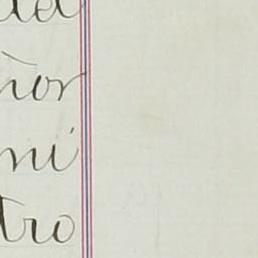 ñor
mi
tro